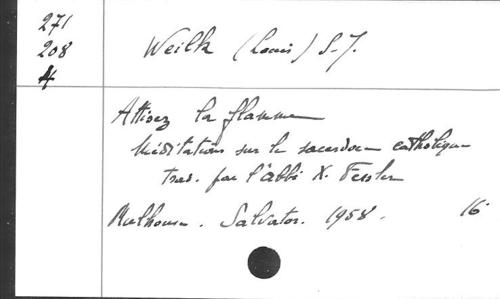 271
208
4
Weilk (Louis) S.J.
Attisez la flamme
Méditations sur le sacerdoce catholique
trad. par l'abbé X. Fessler
Mulhouse. Salvator. 1958. 16°